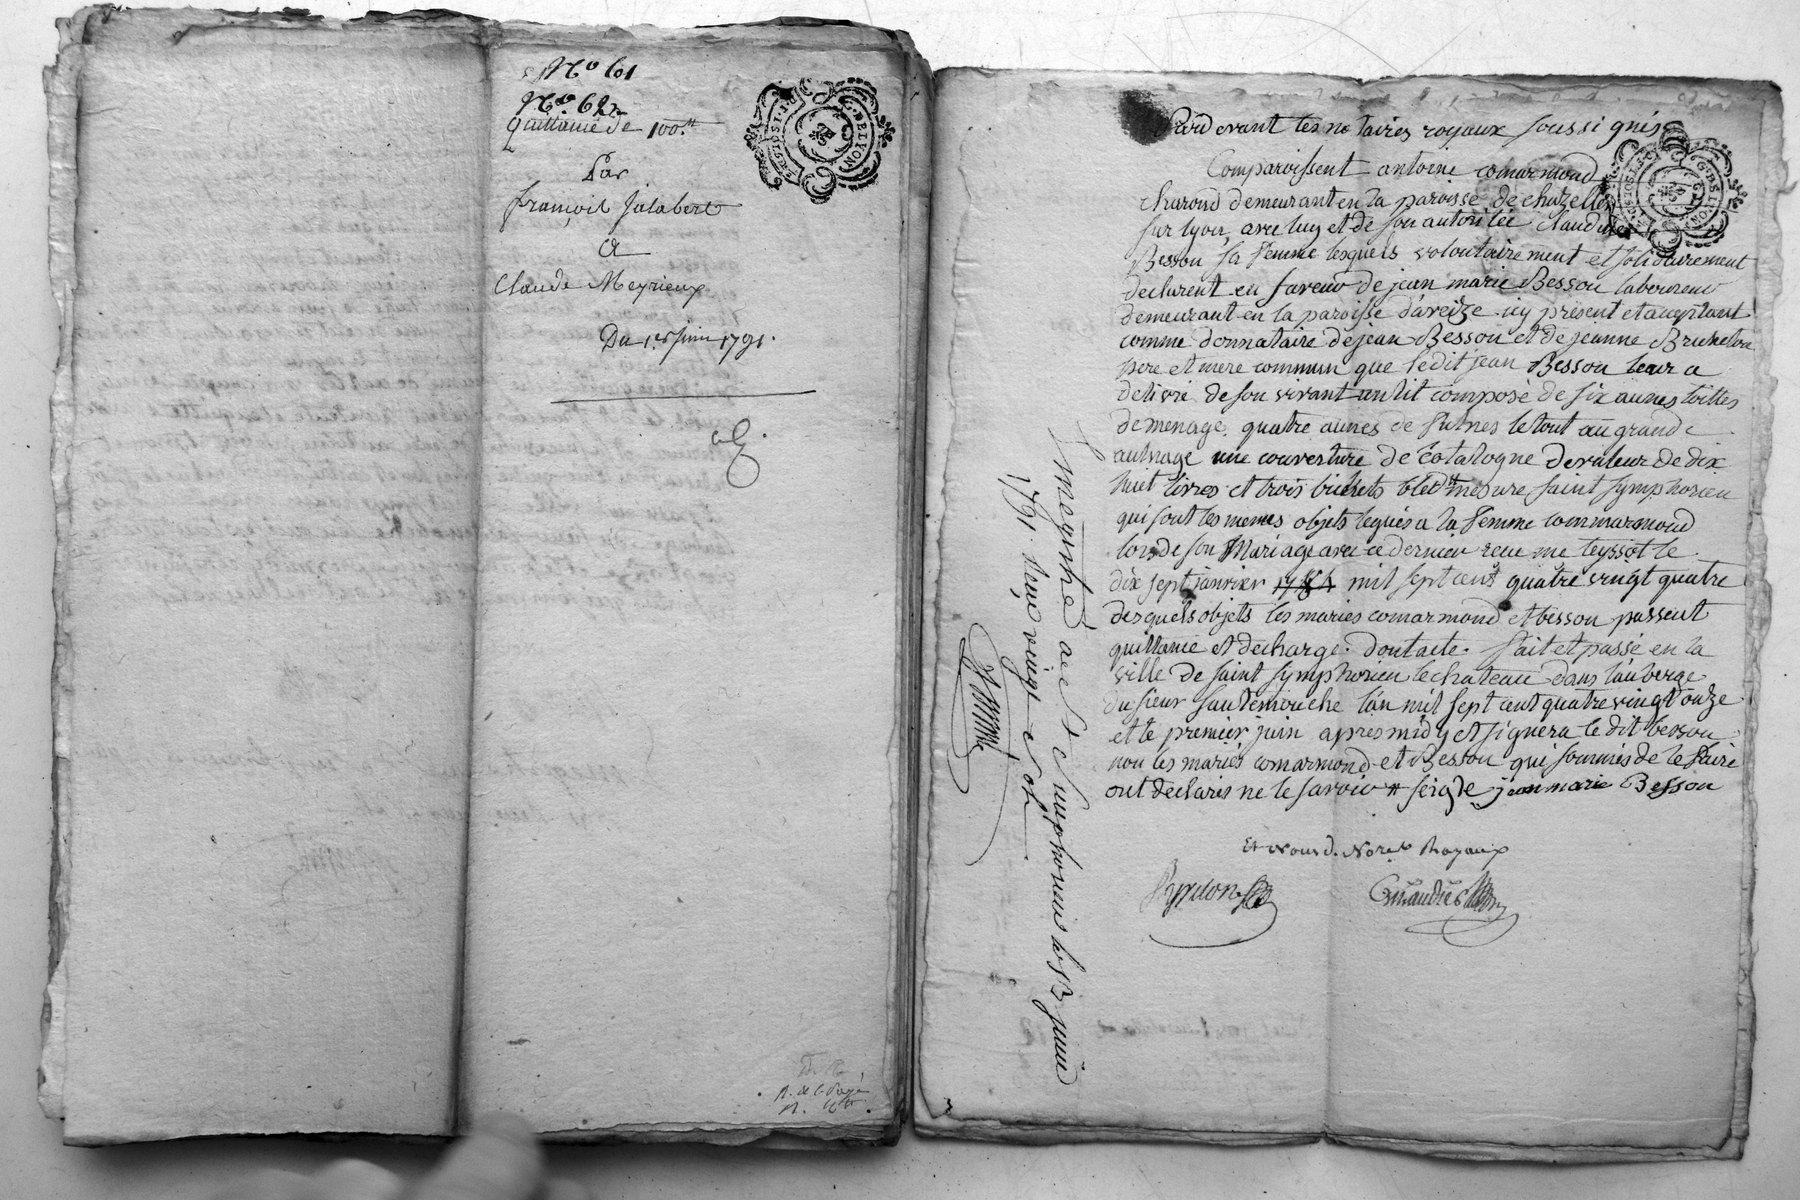 N.o 61
N.o 62
quittance de 100.tt
Par
françois Jalabert
A
Claude Meyrieux
Du 1.er juin 1791.
G. DE LYON
Pardevant les notaires royaux soussignés
Comparoissent antoine comarmond
charond demeurant en la paroisse de chazelles
sur lyon, avec luy et de son autoritée claudine
Besson sa femme lesquels volontairement et solidairement
declarent en faveur de jean marie Besson laboureur
demeurant en la paroisse d'aveize icy present et acceptant
comme donnataire de jean Besson et de jeanne Bruneton
pere et mere commun que ledit jean Besson leur a
delivré de son vivant un lit composé de six aunes toilles
de menage quatre aunes de futnes le tout au grand
aulnage une couverture de Catalogne de valeur de dix
huit livres et trois bichets bled # mesure saint symphorien
qui sont les memes objets legués a la femme commarmond
lors de son Mariage avec ce dernier recu me teyssot le
dix sept janvier 1784 mil sept cent quatre vingt quatre
desquels objets les mariés comarmond et besson passent
quittance et decharge. dont acte. fait et passé en la
ville de saint symphorien le chateau dans l'auberge
du sieur Sautemouche l'an mil sept cent quatre vingt onze
et le premier juin apres midy et signera le dit besson
non les mariés comarmond et Besson qui sommés de le faire
ont declarés ne le savoir # seigle jean marie Besson
Et Nous d. No.res Royaux
Enregistré a St Simphorien le 13 juin
1791. Reçu vingt sols